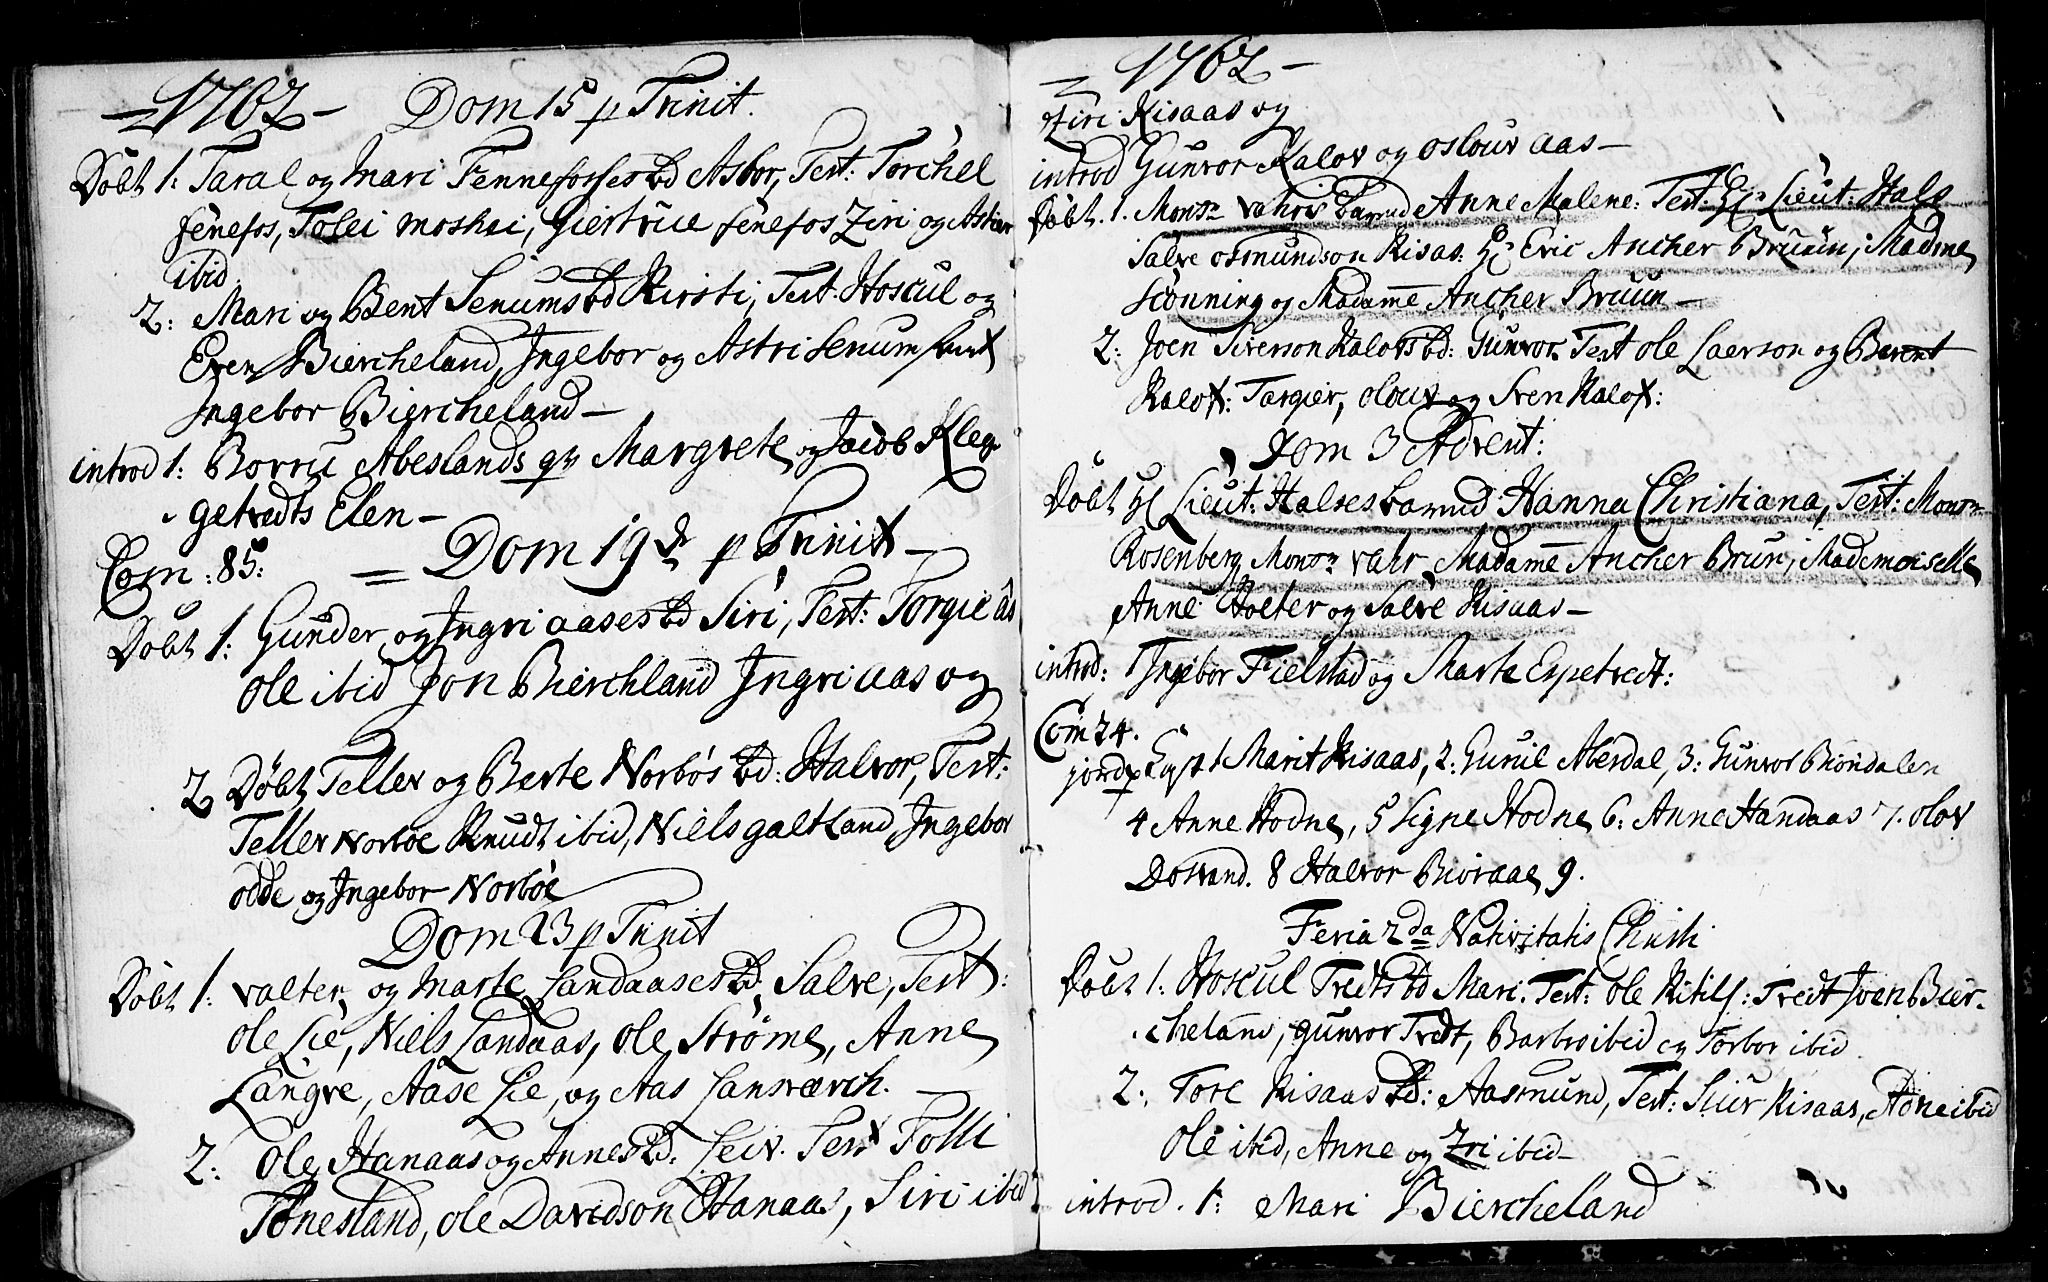 1762 Dom 15 p Trinit.
Döbt 1: Taral og Mari Fennefosses bd Asbor, Test: Torchel
fenefos, Tolei moskei, Giertrue fenefos Ziri og
ibid
2: Mari og Bent Senums bd Kirsti, Test. Hoscul og
Even Biercheland, Ingebor og Astri Senum samt
Ingebor Biercheland
introd 1: Borru Abeslands qv Margrete og Jacob Kleg
getvedts Elen
Com: 85: Dom 19 p Trinit
Döbt 1: Gunder og Ingri aases bd Siri, Test: Torgie ås
ole ibid Jon Bierchland Ingri aas og
2 Döbt Tellev og Berte Norbös bd: Halvor, Test:
Tellev Norböe Knudt ibid, Niels galtland, Ingebor
odde og Ingebor Norböe
Dom 23 p Trinit
Döbt 1: valter og Marte Landaases bd. Salve, Test:
Ole Lie, Niels Landaas, ole Ströme, Anne
Langve, Aase Lie, og Aas Lansværch.
2: Ole Hanaas og Annes bd. Leiv. Test Tolli
Tönesland, ole Davidson Hanaas, Siri ibid
1762
Ziri Risaas og
introd Gunvor Kalov og oslouv aas
Döbt. 1. Monsr vahrs barnd Anne Malene: Test: Hr Lieut: Hals
Salve osmundson Risas: Hr Eric Ancher Bruun, Madme
Scönning og Madame Ancher Bruun
2: Joen Siverson Kalovs bd: Gunvor Test ole Laerson og Berent
Kalov: Targier, olouv og Sven Kalov:
Dom 3 Advent:
Döbt Hr Lieut: Halses barnd Hanna Christiana, Test: Monsr
Rosenberg, Monsr vahr, Madame Ancher Brun, Mademoiselle
Anne Holter og Salve Risaas
introd: 1 Ingebor Fielstad og Marte Espetvedt:
Com 24.
jordp 1 Marit Risaas, 2: Guruil Aberdal, 3: Gunvor Biöndalen
4 Anne Hodne, 5 Signe Hodne 6: Anne Handaas 7. olov
Dosvand. 8 Halvor 9.
Feria 2da Nativitatis Christi
Döbt 1. Hoscul Tredts bd Mari. Test: Ole Kitils: Tredt Joen Bier-
cheland, gunvor Tredt, Barbro ibid og Torbor ibid
2. Tore Risaas bd: Aasmund, Test: Siur Risaas, Aane ibid
Ole ibid, Anne og Zri ibid
introd. 1: Mari Biercheland